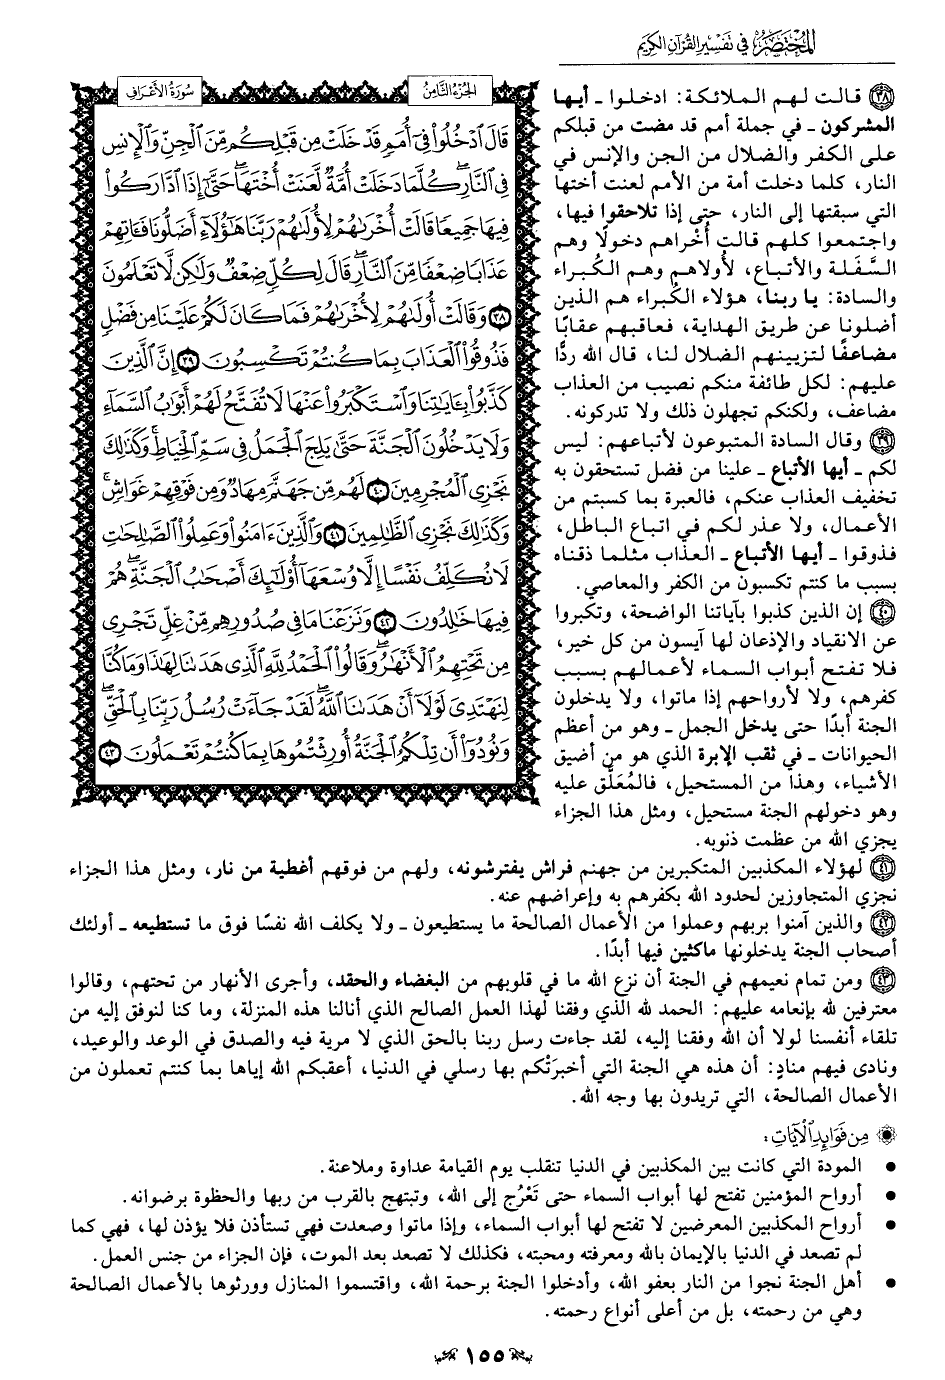 المختصر في تفسير القرآن الكريم
الجزء الثامن
سورة الأعراف
قَالَ ٱدْخُلُوا۟ فِىٓ أُمَمٍ قَدْ خَلَتْ مِن قَبْلِكُم مِّنَ ٱلْجِنِّ وَٱلْإِنسِ
فِى ٱلنَّارِ ۖ كُلَّمَا دَخَلَتْ أُمَّةٌ لَّعَنَتْ أُخْتَهَا ۖ حَتَّىٰٓ إِذَا ٱدَّارَكُوا۟
فِيهَا جَمِيعًا قَالَتْ أُخْرَىٰهُمْ لِأُولَىٰهُمْ رَبَّنَا هَٰٓؤُلَآءِ أَضَلُّونَا فَـَٔاتِهِمْ
عَذَابًا ضِعْفًا مِّنَ ٱلنَّارِ ۖ قَالَ لِكُلٍّ ضِعْفٌ وَلَٰكِن لَّا تَعْلَمُونَ
٣٨ وَقَالَتْ أُولَىٰهُمْ لِأُخْرَىٰهُمْ فَمَا كَانَ لَكُمْ عَلَيْنَا مِن فَضْلٍ
فَذُوقُوا۟ ٱلْعَذَابَ بِمَا كُنتُمْ تَكْسِبُونَ ٣٩ إِنَّ ٱلَّذِينَ
كَذَّبُوا۟ بِـَٔايَٰتِنَا وَٱسْتَكْبَرُوا۟ عَنْهَا لَا تُفَتَّحُ لَهُمْ أَبْوَٰبُ ٱلسَّمَآءِ
وَلَا يَدْخُلُونَ ٱلْجَنَّةَ حَتَّىٰ يَلِجَ ٱلْجَمَلُ فِى سَمِّ ٱلْخِيَاطِ ۚ وَكَذَٰلِكَ
نَجْزِى ٱلْمُجْرِمِينَ ٤٠ لَهُم مِّن جَهَنَّمَ مِهَادٌ وَمِن فَوْقِهِمْ غَوَاشٍ ۚ
وَكَذَٰلِكَ نَجْزِى ٱلظَّٰلِمِينَ ٤١ وَٱلَّذِينَ ءَامَنُوا۟ وَعَمِلُوا۟ ٱلصَّٰلِحَٰتِ
لَا نُكَلِّفُ نَفْسًا إِلَّا وُسْعَهَآ أُو۟لَٰٓئِكَ أَصْحَٰبُ ٱلْجَنَّةِ ۖ هُمْ
فِيهَا خَٰلِدُونَ ٤٢ وَنَزَعْنَا مَا فِى صُدُورِهِم مِّنْ غِلٍّ تَجْرِى
مِن تَحْتِهِمُ ٱلْأَنْهَٰرُ ۖ وَقَالُوا۟ ٱلْحَمْدُ لِلَّهِ ٱلَّذِى هَدَىٰنَا لِهَٰذَا وَمَا كُنَّا
لِنَهْتَدِىَ لَوْلَآ أَنْ هَدَىٰنَا ٱللَّهُ ۖ لَقَدْ جَآءَتْ رُسُلُ رَبِّنَا بِٱلْحَقِّ ۖ
وَنُودُوٓا۟ أَن تِلْكُمُ ٱلْجَنَّةُ أُورِثْتُمُوهَا بِمَا كُنتُمْ تَعْمَلُونَ ٤٣
٣٨ قالت لهم الملائكة: ادخلوا - أيها
المشركون - في جملة أمم قد مضت من قبلكم
على الكفر والضلال من الجن والإنس في
النار، كلما دخلت أمة من الأمم لعنت أختها
التي سبقتها إلى النار، حتى إذا تلاحقوا فيها،
واجتمعوا كلهم قالت أُخْراهم دخولًا وهم
السَّفَلة والأتباع، لأُولاهم وهم الكُبراء
والسادة: يا ربنا، هؤلاء الكُبراء هم الذين
أضلونا عن طريق الهداية، فعاقبهم عقابًا
مضاعفًا لتزيينهم الضلال لنا، قال الله ردًّا
عليهم: لكل طائفة منكم نصيب من العذاب
مضاعف، ولكنكم تجهلون ذلك ولا تدركونه.
٣٩ وقال السادة المتبوعون لأتباعهم: ليس
لكم - أيها الأتباع - علينا من فضل تستحقون به
تخفيف العذاب عنكم، فالعبرة بما كسبتم من
الأعمال، ولا عذر لكم في اتباع الباطل،
فذوقوا - أيها الأتباع - العذاب مثلما ذقناه
بسبب ما كنتم تكسبون من الكفر والمعاصي.
٤٠ إن الذين كذبوا بآياتنا الواضحة، وتكبروا
عن الانقياد والإذعان لها آيسون من كل خير،
فلا تفتح أبواب السماء لأعمالهم بسبب
كفرهم، ولا لأرواحهم إذا ماتوا، ولا يدخلون
الجنة أبدًا حتى يدخل الجمل - وهو من أعظم
الحيوانات - في ثقب الإبرة الذي هو من أضيق
الأشياء، وهذا من المستحيل، فالمُعَلَّق عليه
وهو دخولهم الجنة مستحيل، ومثل هذا الجزاء
يجزي الله من عظمت ذنوبه.
٤١ لهؤلاء المكذبين المتكبرين من جهنم فراش يفترشونه، ولهم من فوقهم أغطية من نار، ومثل هذا الجزاء
نجزي المتجاوزين لحدود الله بكفرهم به وإعراضهم عنه.
٤٢ والذين آمنوا بربهم وعملوا من الأعمال الصالحة ما يستطيعون - ولا يكلف الله نفسًا فوق ما تستطيعه - أولئك
أصحاب الجنة يدخلونها ماكثين فيها أبدًا.
٤٣ ومن تمام نعيمهم في الجنة أن نزع الله ما في قلوبهم من البغضاء والحقد، وأجرى الأنهار من تحتهم، وقالوا
معترفين لله بإنعامه عليهم: الحمد لله الذي وفقنا لهذا العمل الصالح الذي أنالنا هذه المنزلة، وما كنا لنوفق إليه من
تلقاء أنفسنا لولا أن الله وفقنا إليه، لقد جاءت رسل ربنا بالحق الذي لا مرية فيه والصدق في الوعد والوعيد،
ونادى فيهم منادٍ: أن هذه هي الجنة التي أخبرَتْكم بها رسلي في الدنيا، أعقبكم الله إياها بما كنتم تعملون من
الأعمال الصالحة، التي تريدون بها وجه الله.
من فوائد الآيات:
• المودة التي كانت بين المكذبين في الدنيا تنقلب يوم القيامة عداوة وملاعنة.
• أرواح المؤمنين تفتح لها أبواب السماء حتى تَعْرُج إلى الله، وتبتهج بالقرب من ربها والحظوة برضوانه.
• أرواح المكذبين المعرضين لا تفتح لها أبواب السماء، وإذا ماتوا وصعدت فهي تستأذن فلا يؤذن لها، فهي كما
لم تصعد في الدنيا بالإيمان بالله ومعرفته ومحبته، فكذلك لا تصعد بعد الموت، فإن الجزاء من جنس العمل.
• أهل الجنة نجوا من النار بعفو الله، وأدخلوا الجنة برحمة الله، واقتسموا المنازل وورثوها بالأعمال الصالحة
وهي من رحمته، بل من أعلى أنواع رحمته.
١٥٥